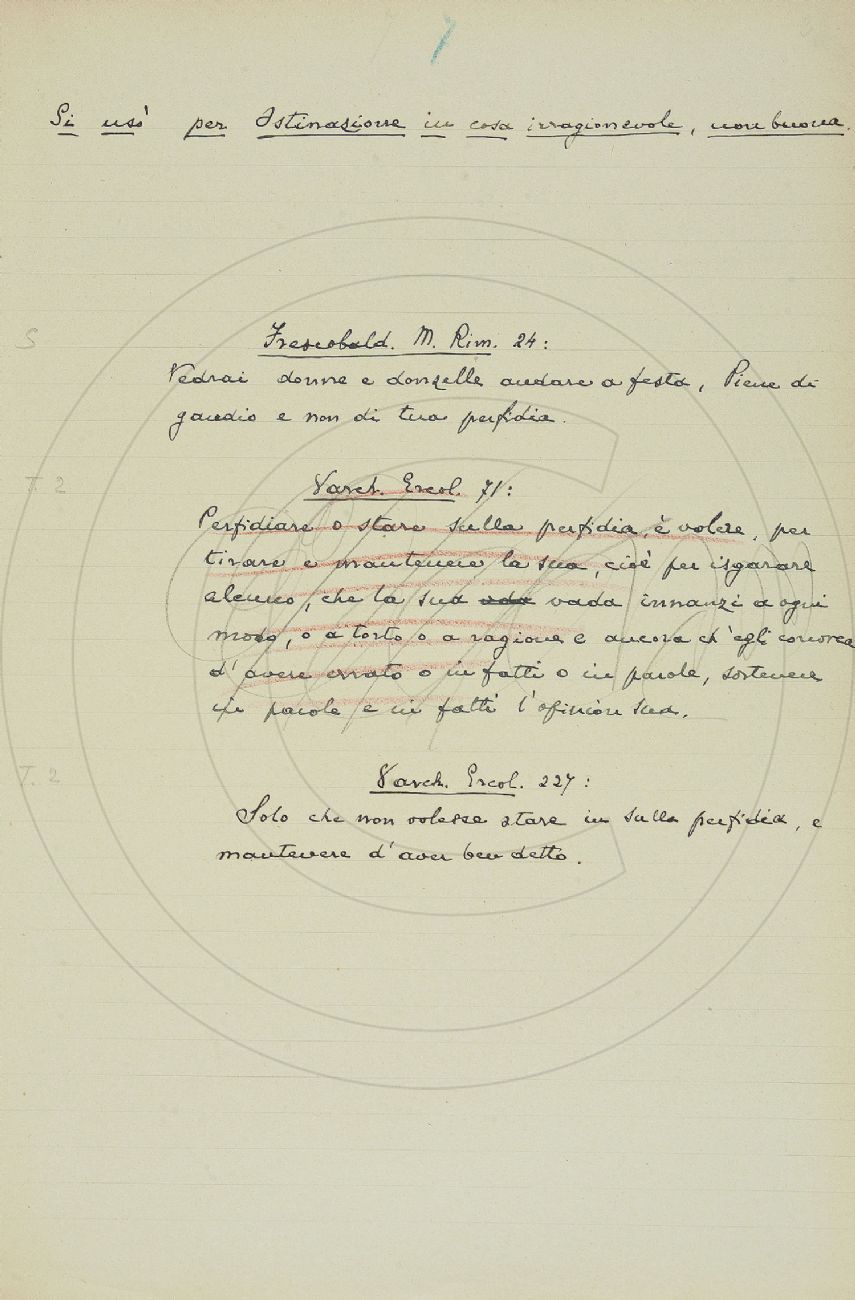 Si usò per Istinazione in cosa irragionevole, non buona.
S
Frescobald. M. Rim. 24:
Vedrai donne e donzelle andare a festa, Piene di
gaudio e non di tua perfidia.
T. 2
Varch. Ercol. 71:
Perfidiare o stare sulla perfidia, è volere, per
tirare e mantenere la sua, cioè per isgarare
alcuno, che la sua vada innanzi a ogni
modo, o a torto o a ragione e ancora ch'egli conosca
d'avere errato o in fatti o in parole, sostenere
in parole e in fatti l'opinion sua.
T. 2
Varch. Ercol. 227:
Solo che non volesse stare in sulla perfidia, e
mantenere d'aver ben detto.